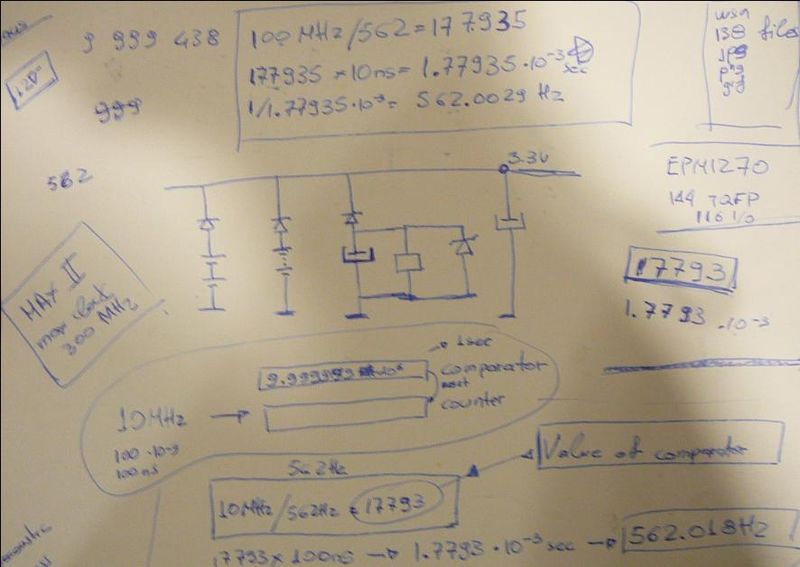 9 999 438
100 MHz/562 = 177.935
177935 x 10ns = 1.77935·10⁻³ sec
1/1.77935·10⁻³ = 562.0029 Hz
999
562
138 files
jpg
png
gif
3.3V
EPM1270
144 TQFP
116 I/O
17793
1.7793·10⁻³
MAX II
max clock
300 MHz
1sec
comparator
next
counter
10MHz
100·10⁻⁹
100ns
562Hz
10MHz/562Hz = 17793
Value of comparator
17793 x 100ns → 1.7793·10⁻³ sec → 562.018Hz